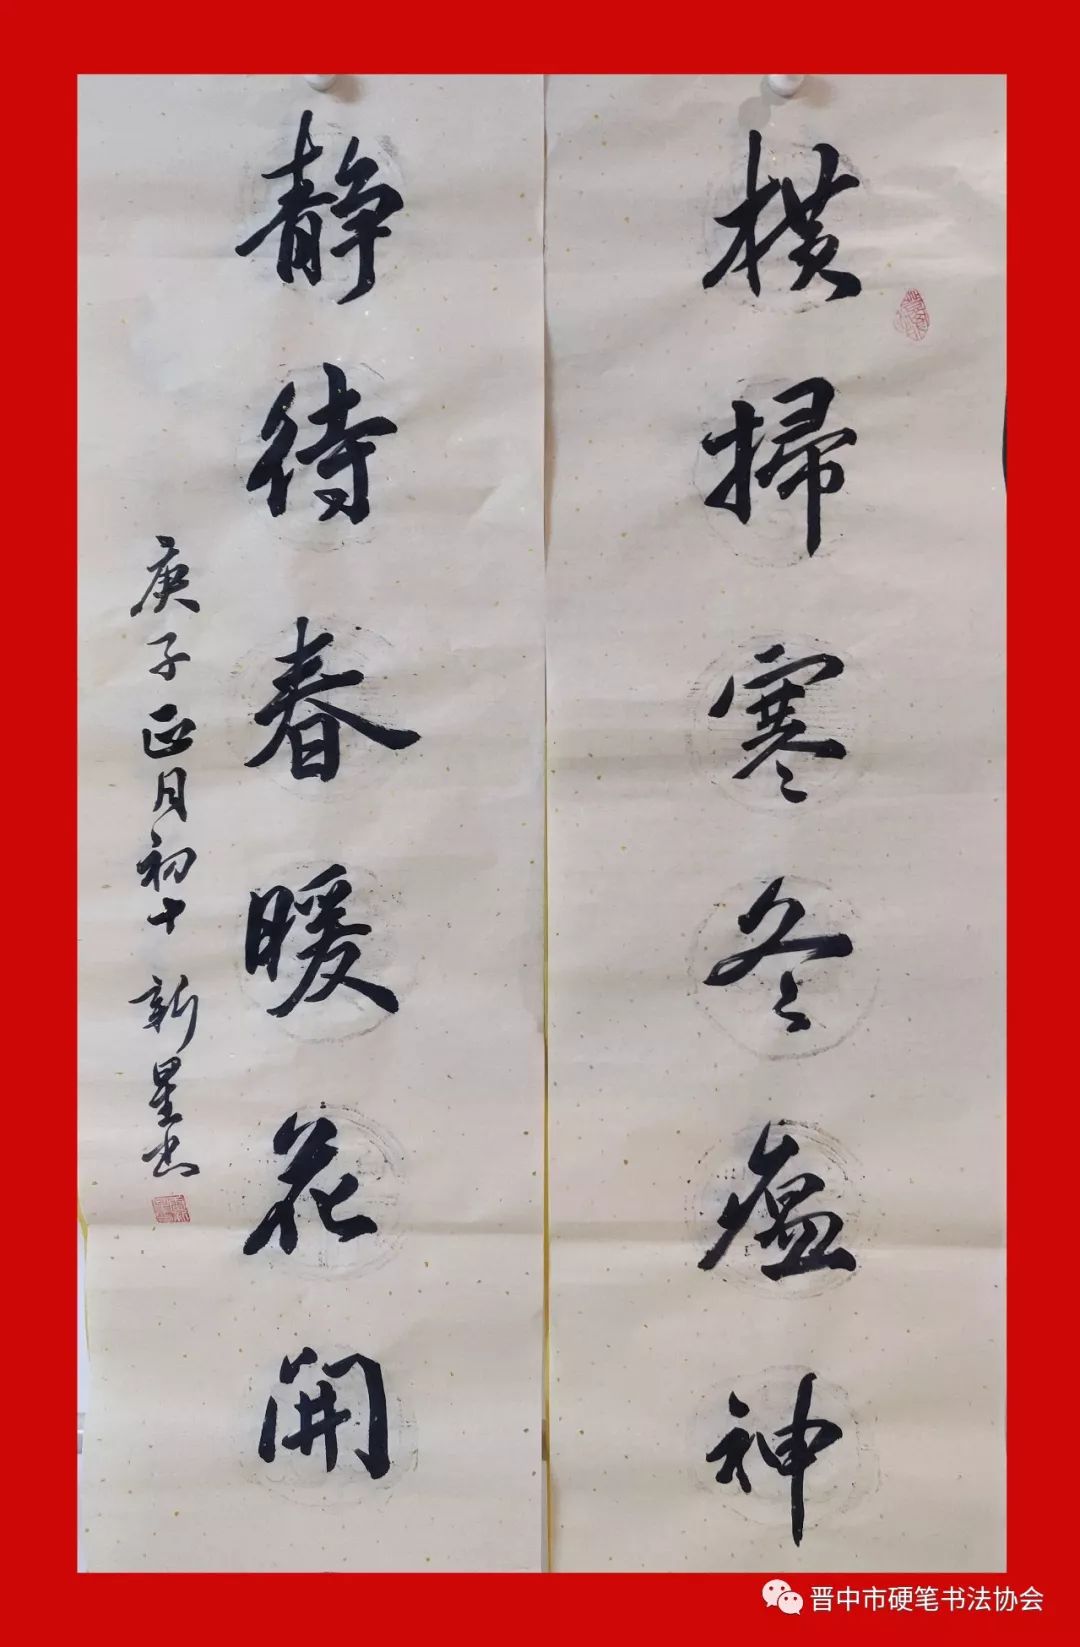 橫掃寒冬瘟神
静待春暖花開
庚子正月初十 新星书
晋中市硬笔书法协会